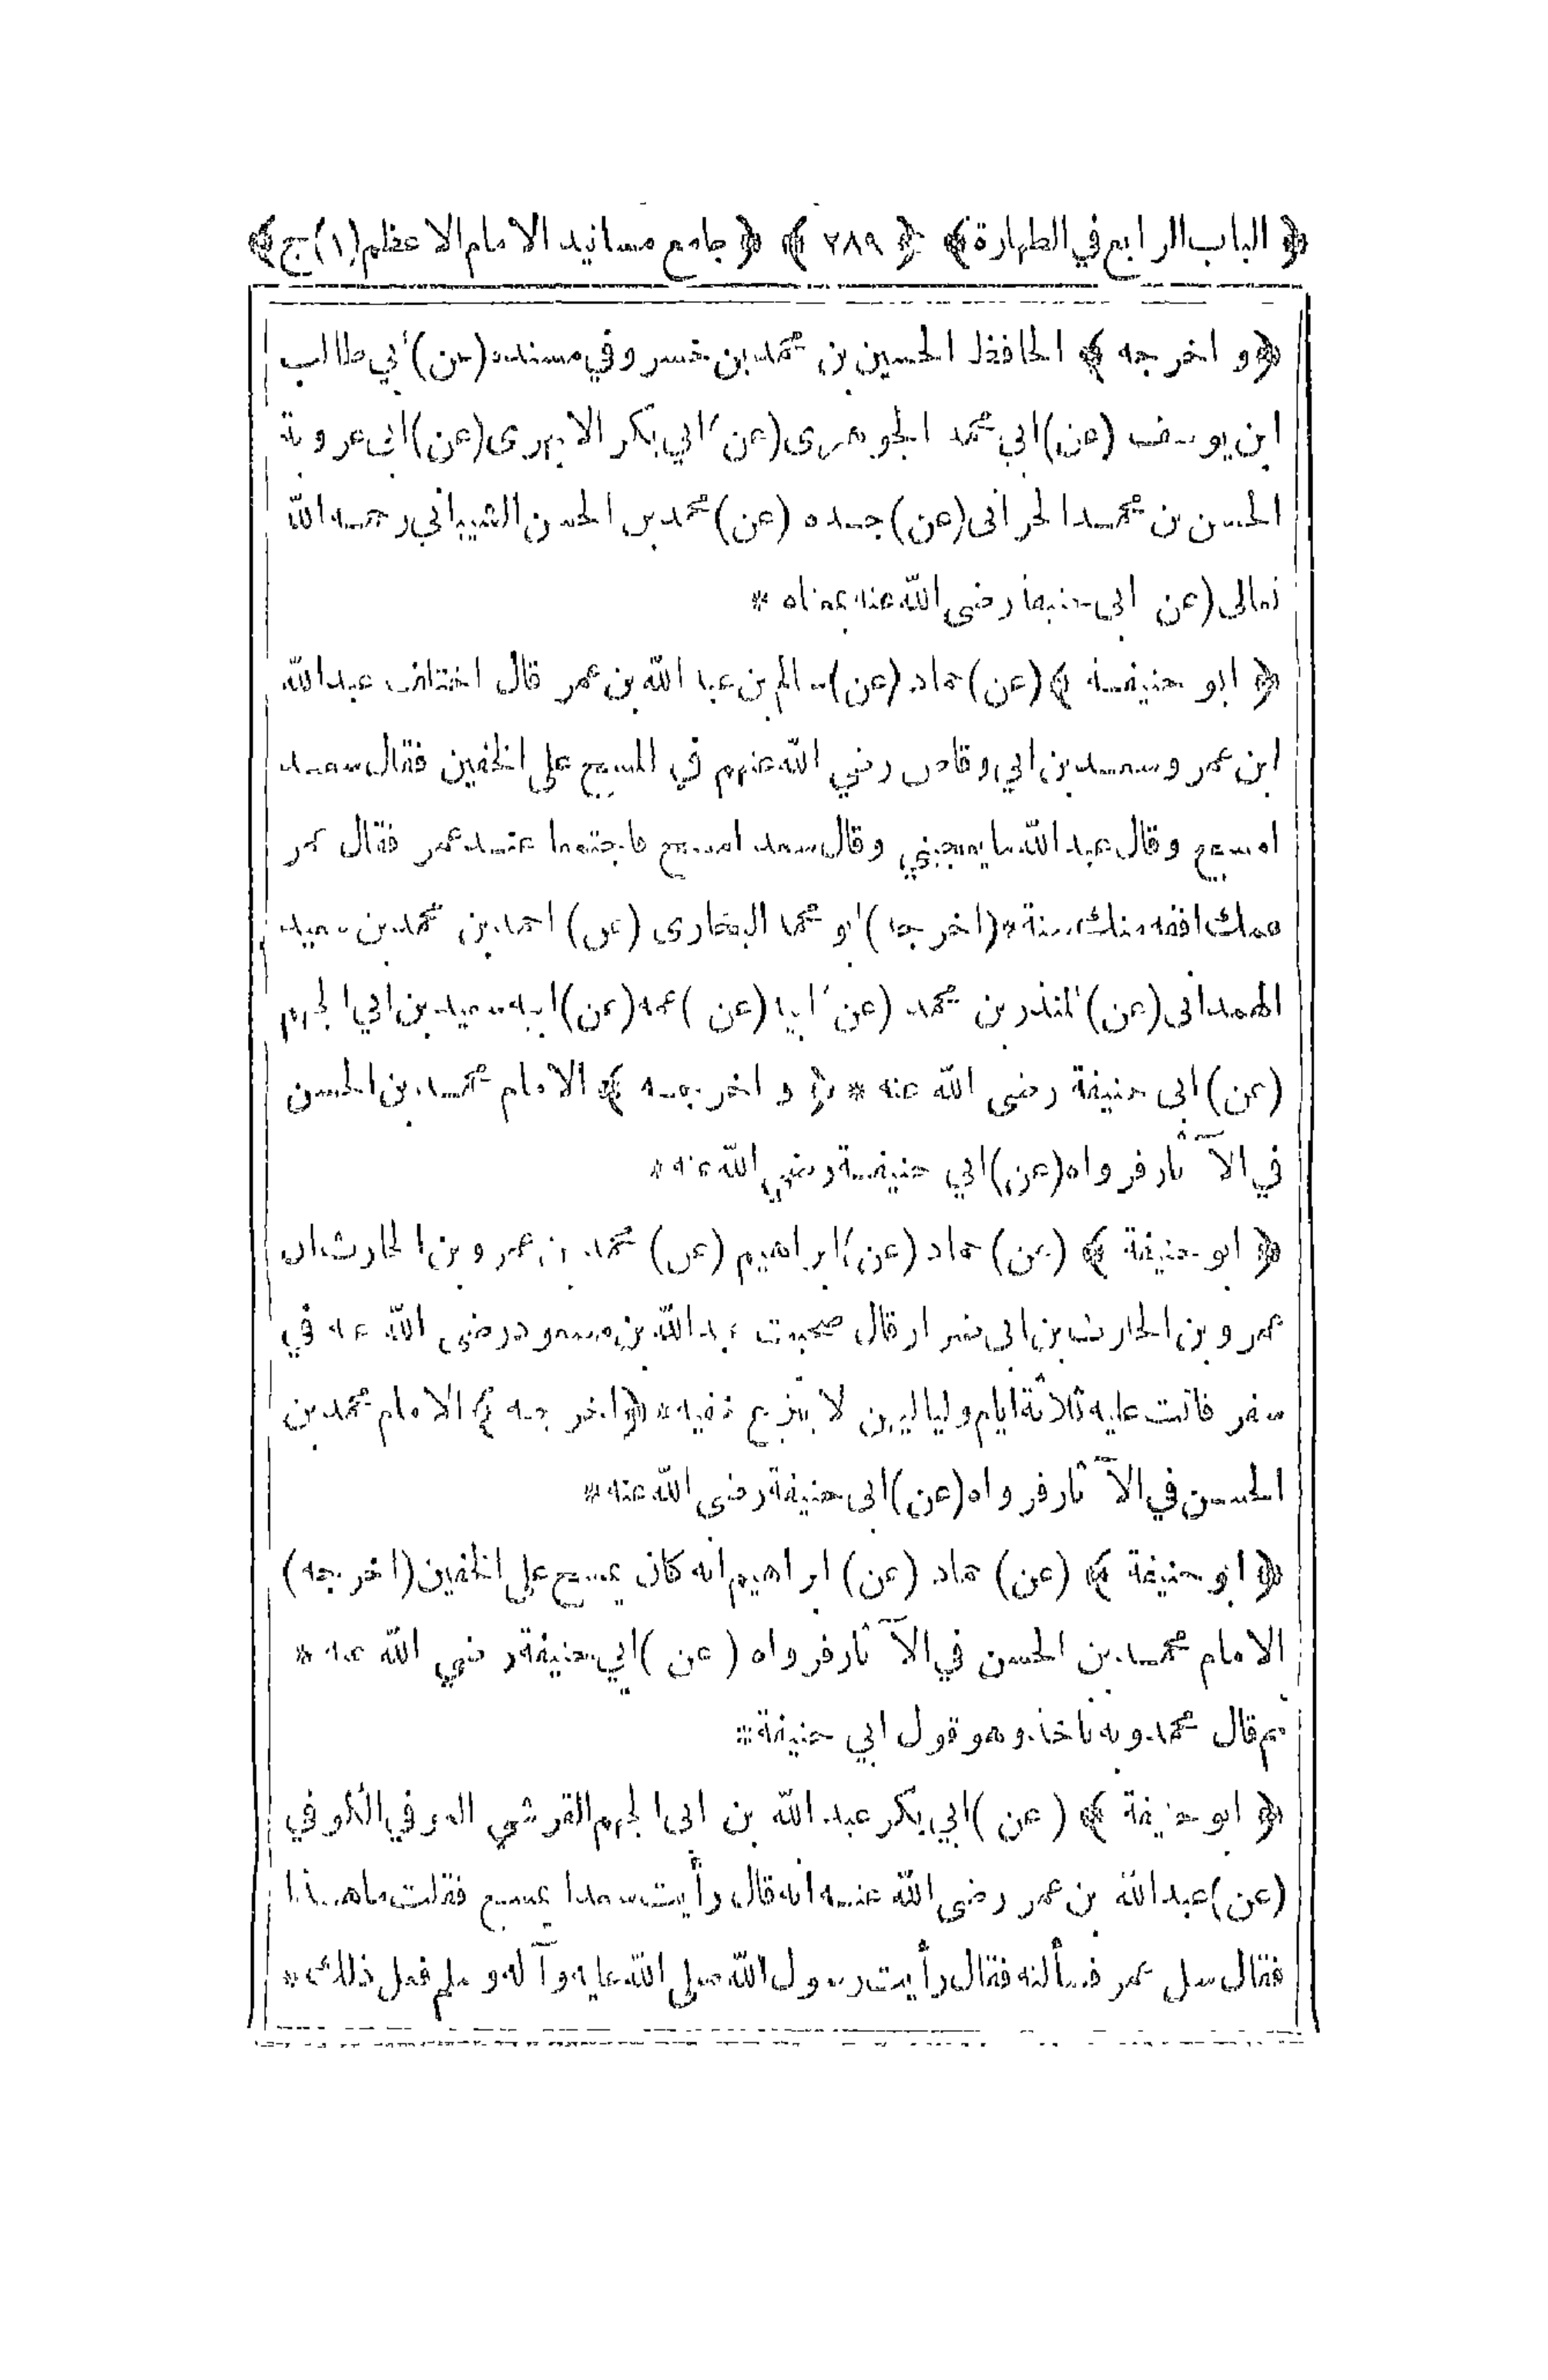 ﴿ الباب الرابع في الطهارة ﴾ ﴿ ٢٨٩ ﴾ ﴿ جامع مسانيد الامام الاعظم (١) ج ﴾
﴿ و اخرجه ﴾ الحافظ الحسين بن محمد بن خسرو في مسنده (عن) ابي طالب
ابن يوسف (عن) ابي محمد الجوهرى (عن) ابي بكر الابهرى (عن) ابى عروبة
الحسن بن محمد الحرانى (عن) جده (عن) محمد بن الحسن الشيباني رحمه الله
تعالى (عن) ابى حنيفة رضى الله عنه بمعناه *
﴿ ابو حنيفة ﴾ (عن) حماد (عن) سالم بن عبد الله بن عمر قال اختلف عبد الله
ابن عمر وسعد بن ابي وقاص رضي الله عنهم في المسح على الخفين فقال سعد
امسح وقال عبد الله ما يعجبني وقال سعد امسح فاجتمعا عند عمر فقال عمر
عمك افقه منك سنة * (اخرجه) ابو محمد البخارى (عن) احمد بن محمد بن سعيد
الهمدانى (عن) المنذر بن محمد (عن) ابيه (عن) عمه (عن) ابيه سعيد بن ابي الجهم
(عن) ابى حنيفة رضى الله عنه * ﴿ و اخرجه ﴾ الامام محمد بن الحسن
في الآثار فرواه (عن) ابي حنيفة رضي الله عنه *
﴿ ابو حنيفة ﴾ (عن) حماد (عن) ابراهيم (عن) محمد بن عمرو بن الحارث ان
عمرو بن الحارث بن ابى ضرار قال صحبت عبد الله بن مسعود رضى الله عنه في
سفر فاتت عليه ثلاثة ايام ولياليهن لا ينزع خفيه * ﴿ واخرجه ﴾ الامام محمد بن
الحسن في الآثار فرواه (عن) ابى حنيفة رضى الله عنه *
﴿ ابو حنيفة ﴾ (عن) حماد (عن) ابراهيم انه كان يمسح على الخفين (اخرجه)
الامام محمد بن الحسن في الآثار فرواه (عن) ابي حنيفة رضي الله عنه *
ثم قال محمد وبه ناخذ وهو قول ابي حنيفة *
﴿ ابو حنيفة ﴾ (عن) ابي بكر عبد الله بن ابى الجهم القرشي العدوي الكوفي
(عن) عبد الله بن عمر رضى الله عنه انه قال رأيت سعدا يمسح فقلت ما هذا
فقال سل عمر فسألته فقال رأيت رسول الله صلى الله عليه وآله وسلم فعل ذلك *